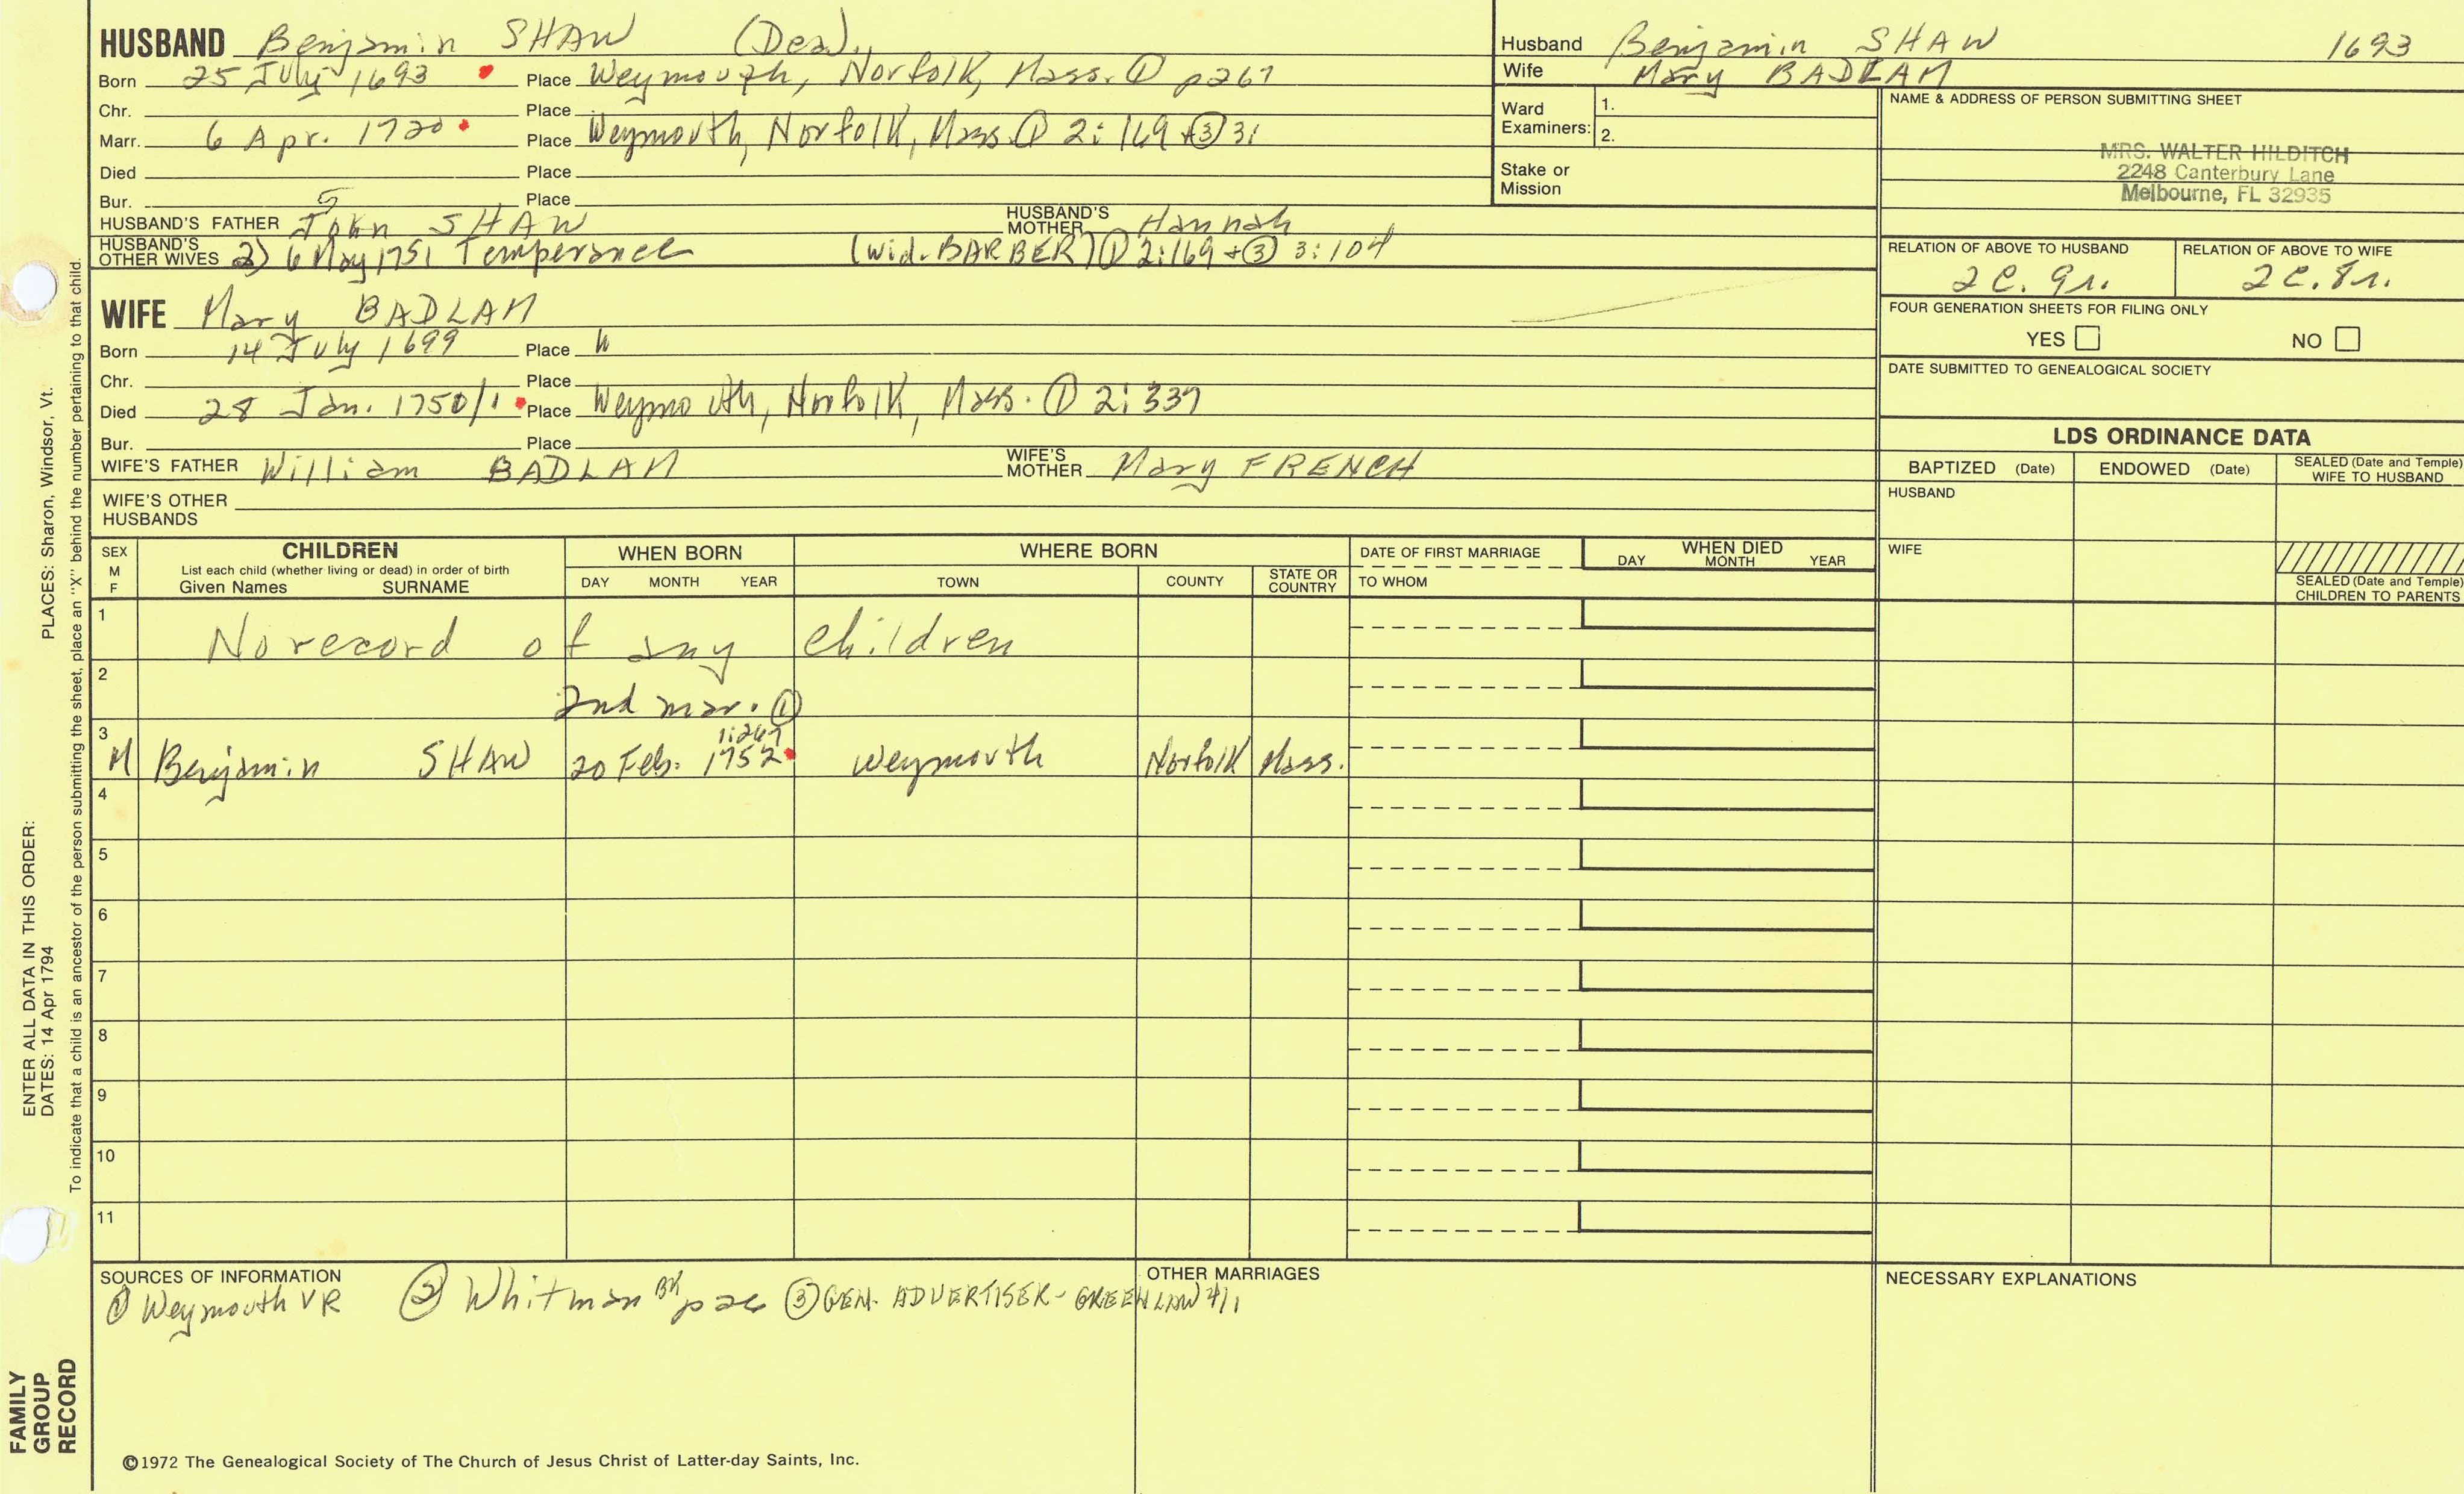 HUSBAND Benjamin SHAW (Dea).
Born 25 July 1693 Place Weymouth, Norfolk, Mass. ① p267
Chr. Place
Marr. 6 Apr. 1720 Place Weymouth, Norfolk, Mass. ① 2:169 + ③ 31
Died Place
Bur. 5 Place
HUSBAND'S FATHER John SHAW HUSBAND'S MOTHER Hannah
HUSBAND'S OTHER WIVES 2) 6 May 1751 Temperance (wid. BARBER) ① 2:169 + ③ 3:104
WIFE Mary BADLAM
Born 14 July 1699 Place W
Chr. Place
Died 28 Jan. 1750/1 Place Weymouth, Norfolk, Mass. ① 2:337
Bur. Place
WIFE'S FATHER William BADLAM WIFE'S MOTHER Mary FRENCH
WIFE'S OTHER HUSBANDS
Husband Benjamin SHAW 1693
Wife Mary BADLAM
Ward Examiners: 1.
2.
Stake or Mission
NAME & ADDRESS OF PERSON SUBMITTING SHEET
MRS. WALTER HILDITCH
2248 Canterbury Lane
Melbourne, FL 32935
RELATION OF ABOVE TO HUSBAND RELATION OF ABOVE TO WIFE
2c. 9r. 2c. 8r.
FOUR GENERATION SHEETS FOR FILING ONLY
YES NO
DATE SUBMITTED TO GENEALOGICAL SOCIETY
LDS ORDINANCE DATA
BAPTIZED (Date) ENDOWED (Date) SEALED (Date and Temple) WIFE TO HUSBAND
HUSBAND
WIFE
SEALED (Date and Temple) CHILDREN TO PARENTS
SEX M F CHILDREN WHEN BORN WHERE BORN DATE OF FIRST MARRIAGE WHEN DIED
List each child (whether living or dead) in order of birth
Given Names SURNAME DAY MONTH YEAR TOWN COUNTY STATE OR COUNTRY TO WHOM DAY MONTH YEAR
1 No record of any children
2 2nd mar. ①
1:267
3 M Benjamin SHAW 20 Feb. 1752 Weymouth Norfolk Mass.
4
5
6
7
8
9
10
11
SOURCES OF INFORMATION OTHER MARRIAGES NECESSARY EXPLANATIONS
① Weymouth VR ② Whitman BK ③ GEN. ADVERTISER - GREENLAW
©1972 The Genealogical Society of The Church of Jesus Christ of Latter-day Saints, Inc.
FAMILY GROUP RECORD
ENTER ALL DATA IN THIS ORDER:
DATES: 14 Apr 1794
PLACES: Sharon, Windsor, Vt.
To indicate that a child is an ancestor of the person submitting the sheet, place an "X" behind the number pertaining to that child.